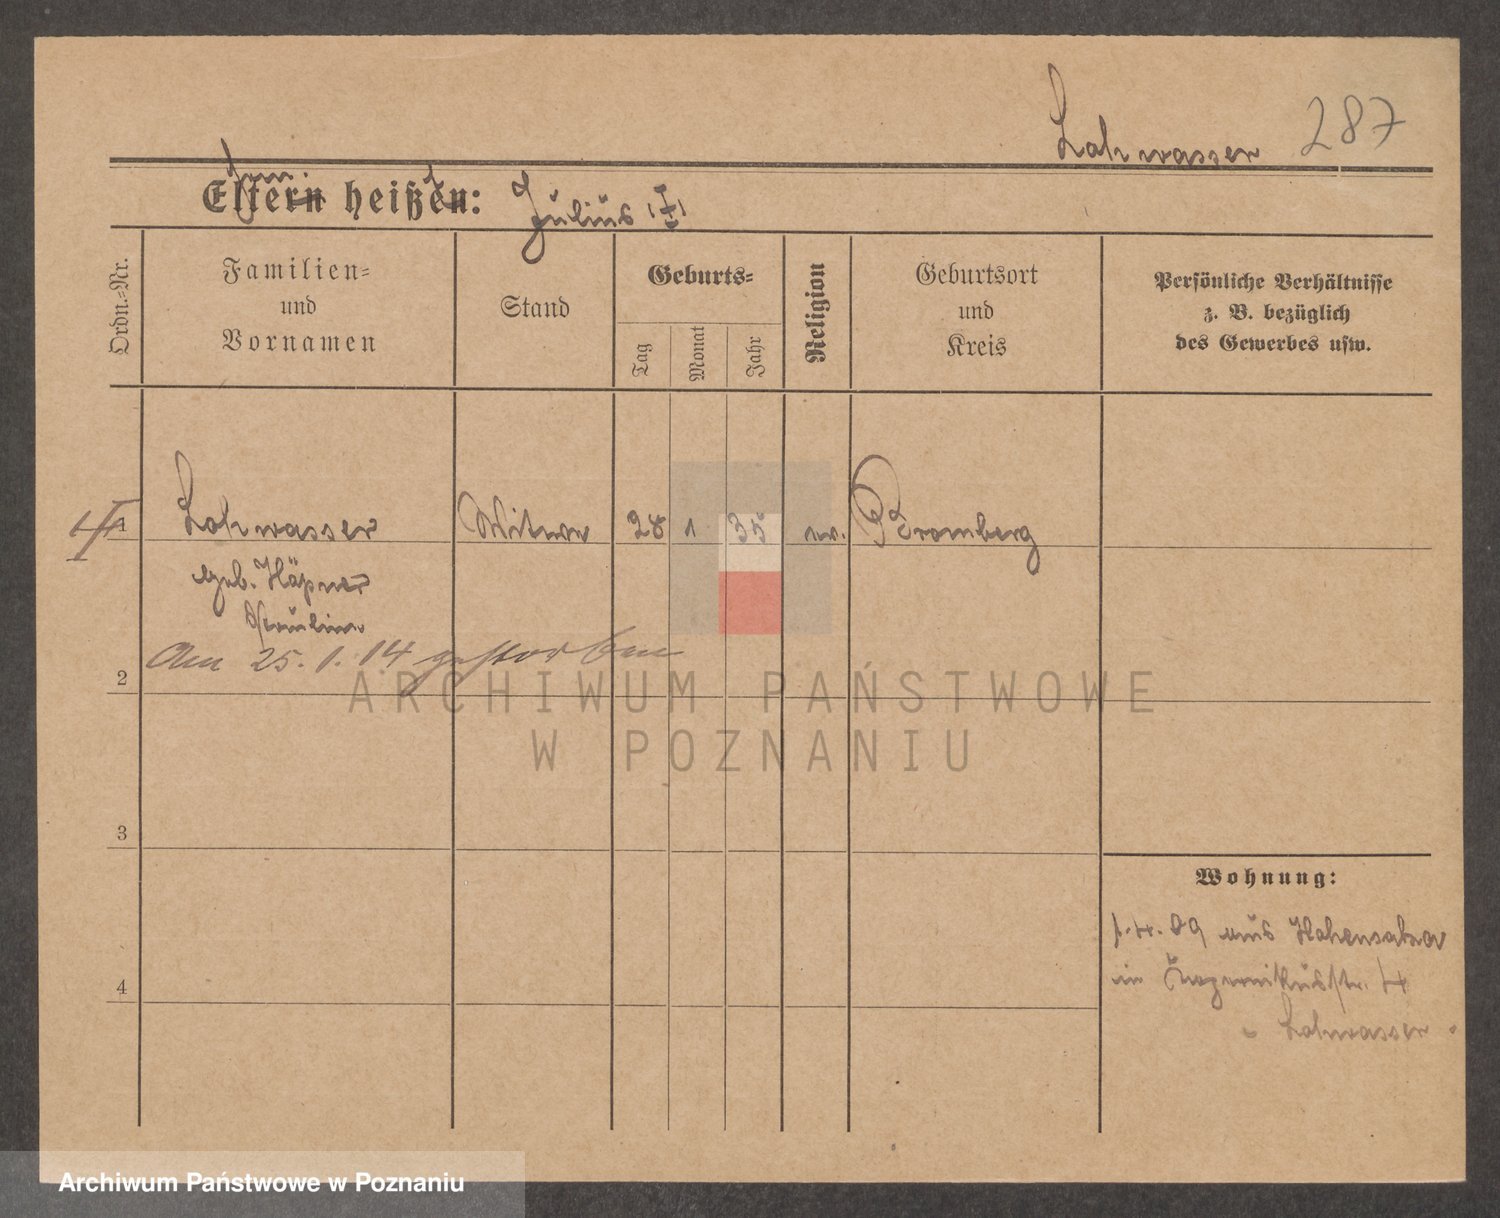 Lohwasser 287
Eltern heißen: Julius (†)
Ordn.-Nr.
Familien-
und
Vornamen
Stand
Geburts-
Tag
Monat
Jahr
Religion
Geburtsort
und
Kreis
Persönliche Verhältnisse
z. B. bezüglich
des Gewerbes usw.
1
Lohwasser Witwe 28 1 35 ev. Bromberg
geb. Häpner
Pauline
Am 25. 1. 14 gestorben
2
ARCHIWUM PAŃSTWOWE
W POZNANIU
3
Wohnung:
1.4.09 aus Hohensalza
in Kopernikusstr. 4
Lohwasser
4
Archiwum Państwowe w Poznaniu